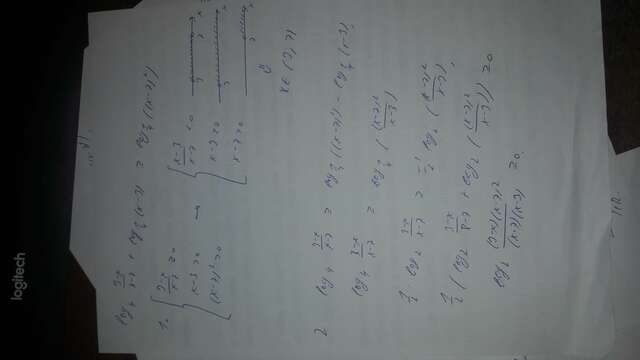 logitech
log₄ (3-x)/(x-7) + log_{1/4} (x-3) ≥ log_{1/4} ((x-7)²)
1. { (3-x)/(x-7) > 0
x-3 > 0
(x-7)² > 0
→ { (x-3)/(x-7) < 0
x-3 > 0
x-7 > 0
3 7 x
3 x
7 x
x ∈ (3, 7)
2 log₄ (3-x)/(x-7) ≥ log_{1/4} ((x-7)²) - log_{1/4} (x-3)
log₄ (3-x)/(x-7) ≥ log_{1/4} ((x-7)²/(x-3))
1/2 log₂ (3-x)/(x-7) ≥ -1/2 log₂ ((x-7)²/(x-3))
1/2 (log₂ (3-x)/(x-7) + log₂ ((x-7)²/(x-3))) ≥ 0
log₂ (3-x)(x-7)²/((x-7)(x-3)) ≥ 0